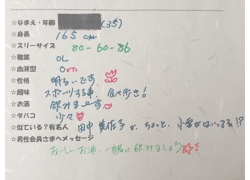 ☆なまえ・年齢 (35)
☆身長 165 cm
☆スリーサイズ 80-60-86
☆職業 OL
☆血液型 O
☆性格 明るいです
☆趣味 スポーツする事、食べ歩き!
☆お酒 飲みまーす
☆タバコ 少々
☆似ている?有名人 田中美佐子が、ちょっと、小雪がはいってる!?
☆男性会員さまへメッセージ
おいしーお酒、一緒に飲みましょう